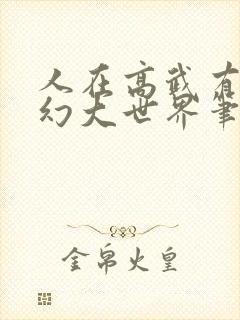 人在高武有
幻大世界筆
金帛火皇